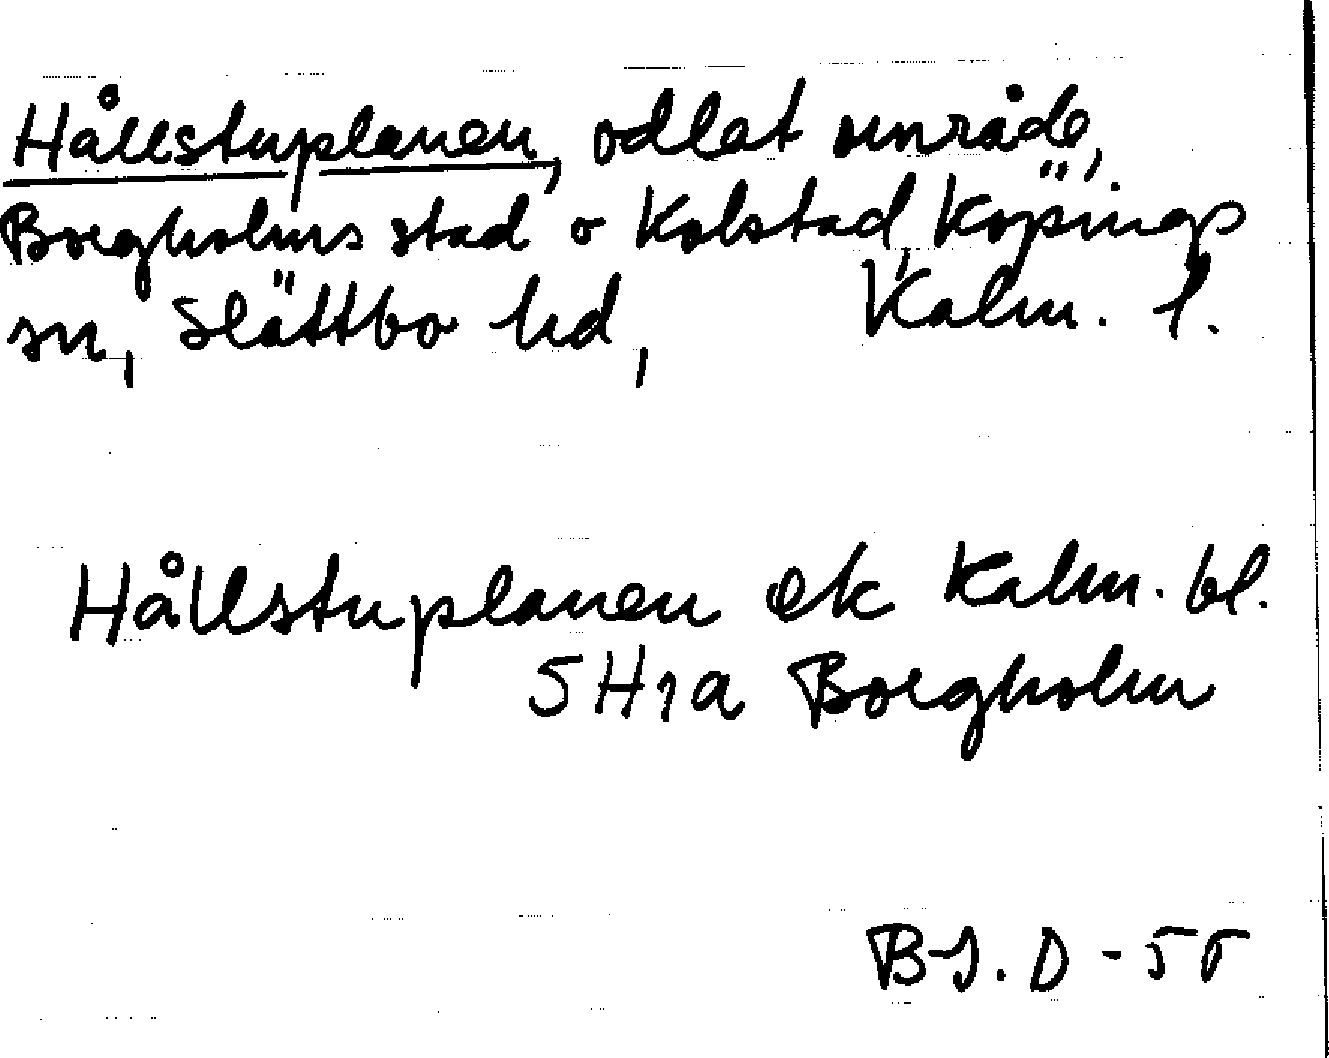 Hållstuplanen, odlat område,
Borgholms stad o Kolstad, Köpings
sn, Slättbo hd, Kalm. l.
Hållstuplanen ek Kalm. bl.
5H1a Borgholm
B-J. D - 55